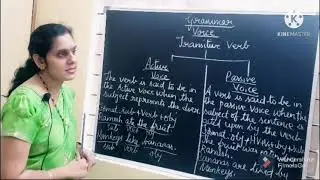 Grammar
Voice
Transitive Verb
Active
Voice
The verb is said to be
in the Active Voice when the
subject represents the doer
Ramesh ate the fruit
Monkeys like bananas.
sub verb obj
Passive
Voice
A verb is said to be in
the passive voice when the
subject of the sentence is
acted upon by the verb
The fruit was
Ramesh.
Bananas are liked by
Monkeys.
KINEMASTER
Wondershare
Filmora